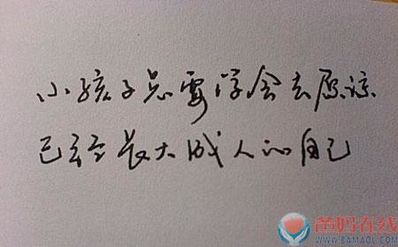 小孩子总要学会去原谅
已经长大成人的自己
爸妈在线
WWW.BAMAOL.COM